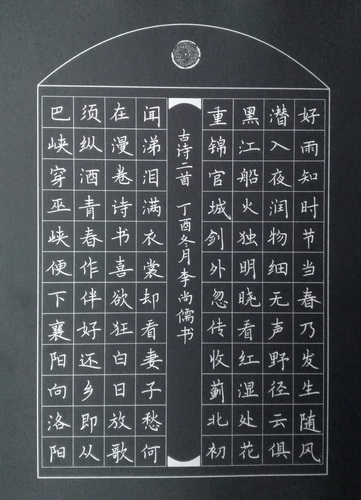 好雨知时节当春乃发生随风
潜入夜润物细无声野径云俱
黑江船火独明晓看红湿处花
重锦官城剑外忽传收蓟北初
古诗二首 丁酉冬月李尚儒书
闻涕泪满衣裳却看妻子愁何
在漫卷诗书喜欲狂白日放歌
须纵酒青春作伴好还乡即从
巴峡穿巫峡便下襄阳向洛阳